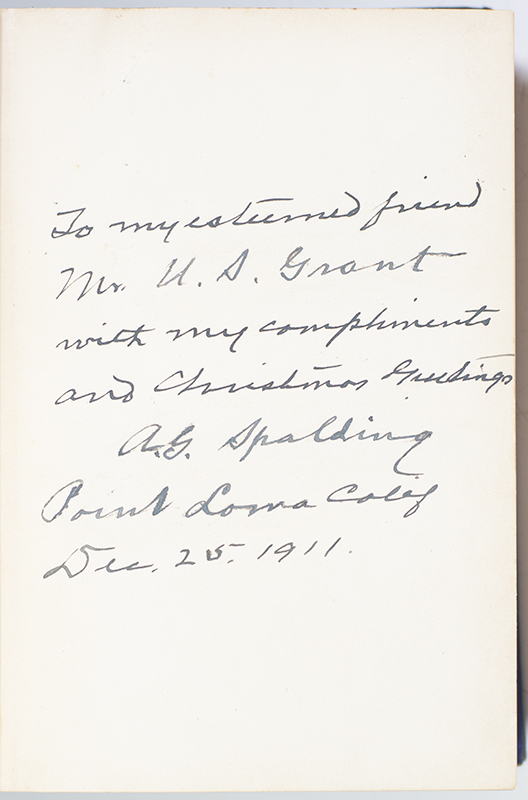 To my esteemed friend
Mr. U. S. Grant
with my compliments
and Christmas Greetings
A.G. Spalding
Point Loma Calif
Dec. 25. 1911.